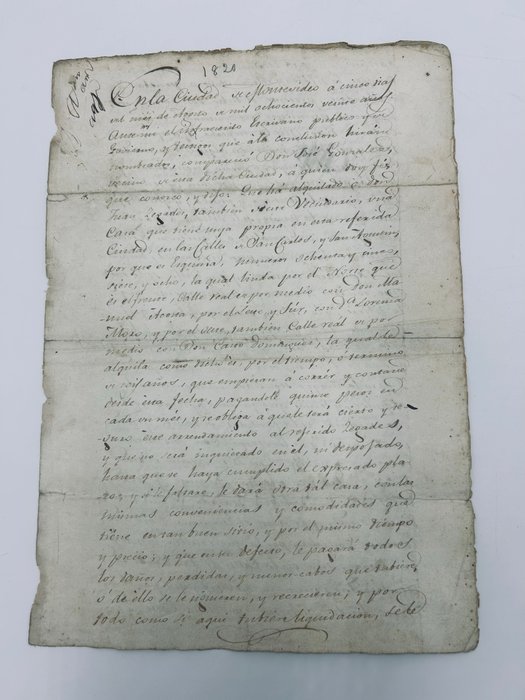 1820
En la Ciudad de Montevideo á cinco dias
del mes de Agosto de mil ochocientos veinte años
Anteme el Escribano publico y de
Govierno, y testigos que á la conclusion hiran
nombrados, comparecio Don José Gonzales,
vecino de esta dicha Ciudad, á quien doy fé
que conozco, y dijo: Que há alquilado a don
Juan Zegades, tambien de este Vecindario, una
Casa que tiene suya propia en esta referida
Ciudad, en las Calles de San Carlos, y San Agustin,
por que es Esquina, numeros ochenta y cinco,
siete, y ocho, la qual linda por el Norte que
es el frente, Calle real de por medio con Don Ma-
nuel Acosta, por el Leste y Súr, con Dª Lorenza
Mozo, y por el oeste, también Calle reál de por
medio con Don Carlos Dominguez, la qual le
alquila como dicho és, por el tiempo, ó termino
de años, que empiezan á corrér y contarse
desde esta fecha, pagandole quince pesos en
cada un mes, y se obliga á que le será cierto y se-
guro este arrendamiento al referido Zegades,
y que no será inquietado en el, ni despojado,
hasta que se haya cumplido el expresado pla-
zo; y si faltare, le dará otra tál casa, con las
mismas conveniencias y comodidades que
tiene en tan buen sitio, y por el mismo tiempo
y precio; y que en su defecto, le pagará todos
los daños, perdidas, y menos cabos que tubiere,
ó de ello se le siguieren, y recrecieren, y por
todo como si aqui tubiere liquidacion, se le